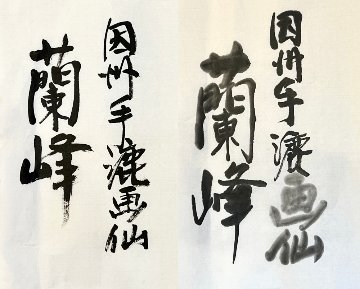 因州手漉画仙
蘭峰
因州手漉画仙
蘭峰